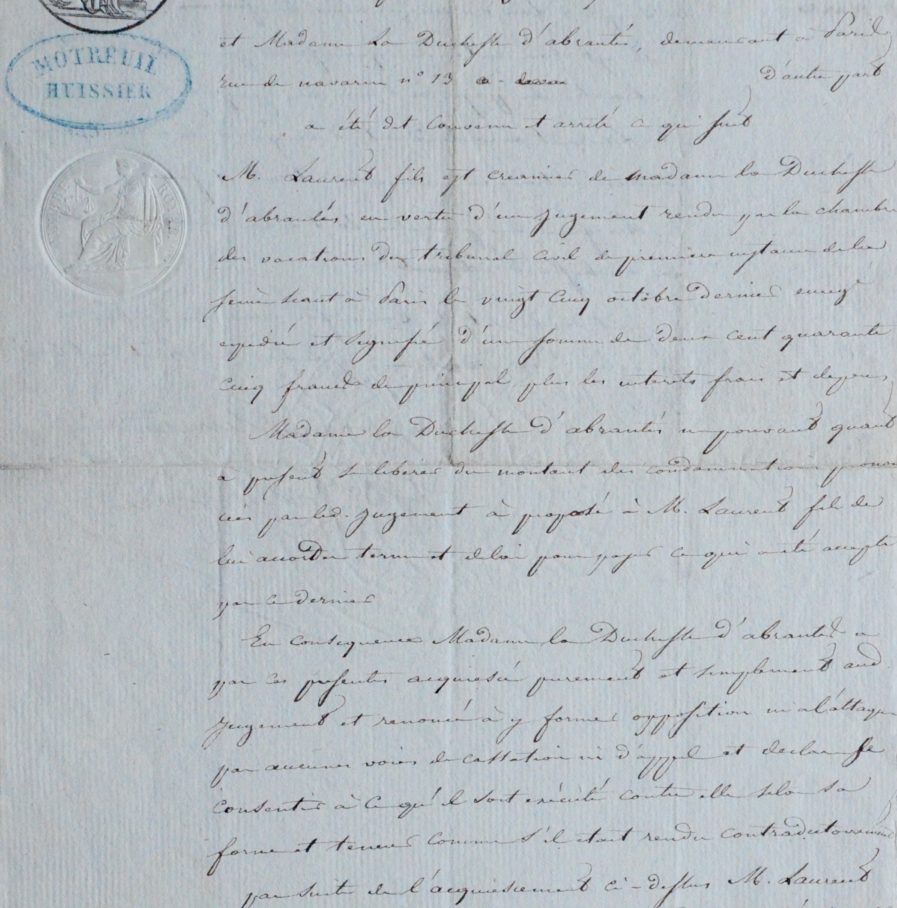 MOTREUIL
HUISSIER
et Madame la Duchesse d'abrantés, demeurant a Paris
rue de navarin n° 13 d'autre part
a été dit convenu et arrêté ce qui suit
M. Laurent fils est creancier de madame la Duchesse
d'abrantés en vertu d'un jugement rendu par la chambre
des vacations du tribunal civil de premiere instance de la
seine seant à Paris le vingt cinq octobre dernier enregé
expedié et signifié d'une somme de deux cent quarante
cinq francs de principal plus les interets frais et depens,
Madame la Duchesse d'abrantés ne pouvant quant
à present se liberer du montant des condamnations pronon
cées par led. jugement à proposé à M. Laurent fils de
lui accorder terme et delai pour payer ce qui a été accepté
par ce dernier
En consequence Madame la Duchesse d'abrantés a
par ces presentes acquiescé purement et simplement aud.
jugement et renoncé à y former opposition ni a l'attaquer
par aucunes voies de cassation ni d'appel et declare
consentir à ce qu'il soit exécuté contre elle selon sa
forme et teneur comme s'il etait rendu contradictoirement
par suite de l'acquiescement ci-dessus M. Laurent